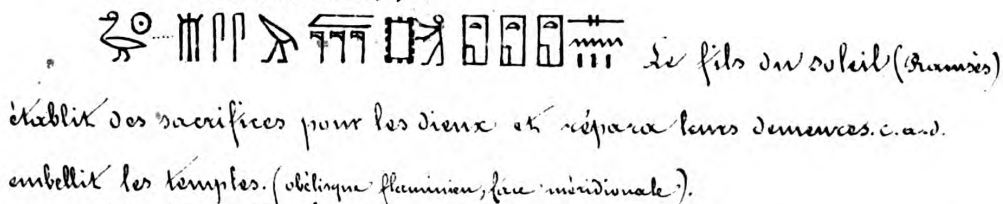 Le fils du soleil (Ramsès)
établit des sacrifices pour les dieux et répara leurs demeures. c.a.d.
embellit les temples. (obélisque flaminien, face méridionale).